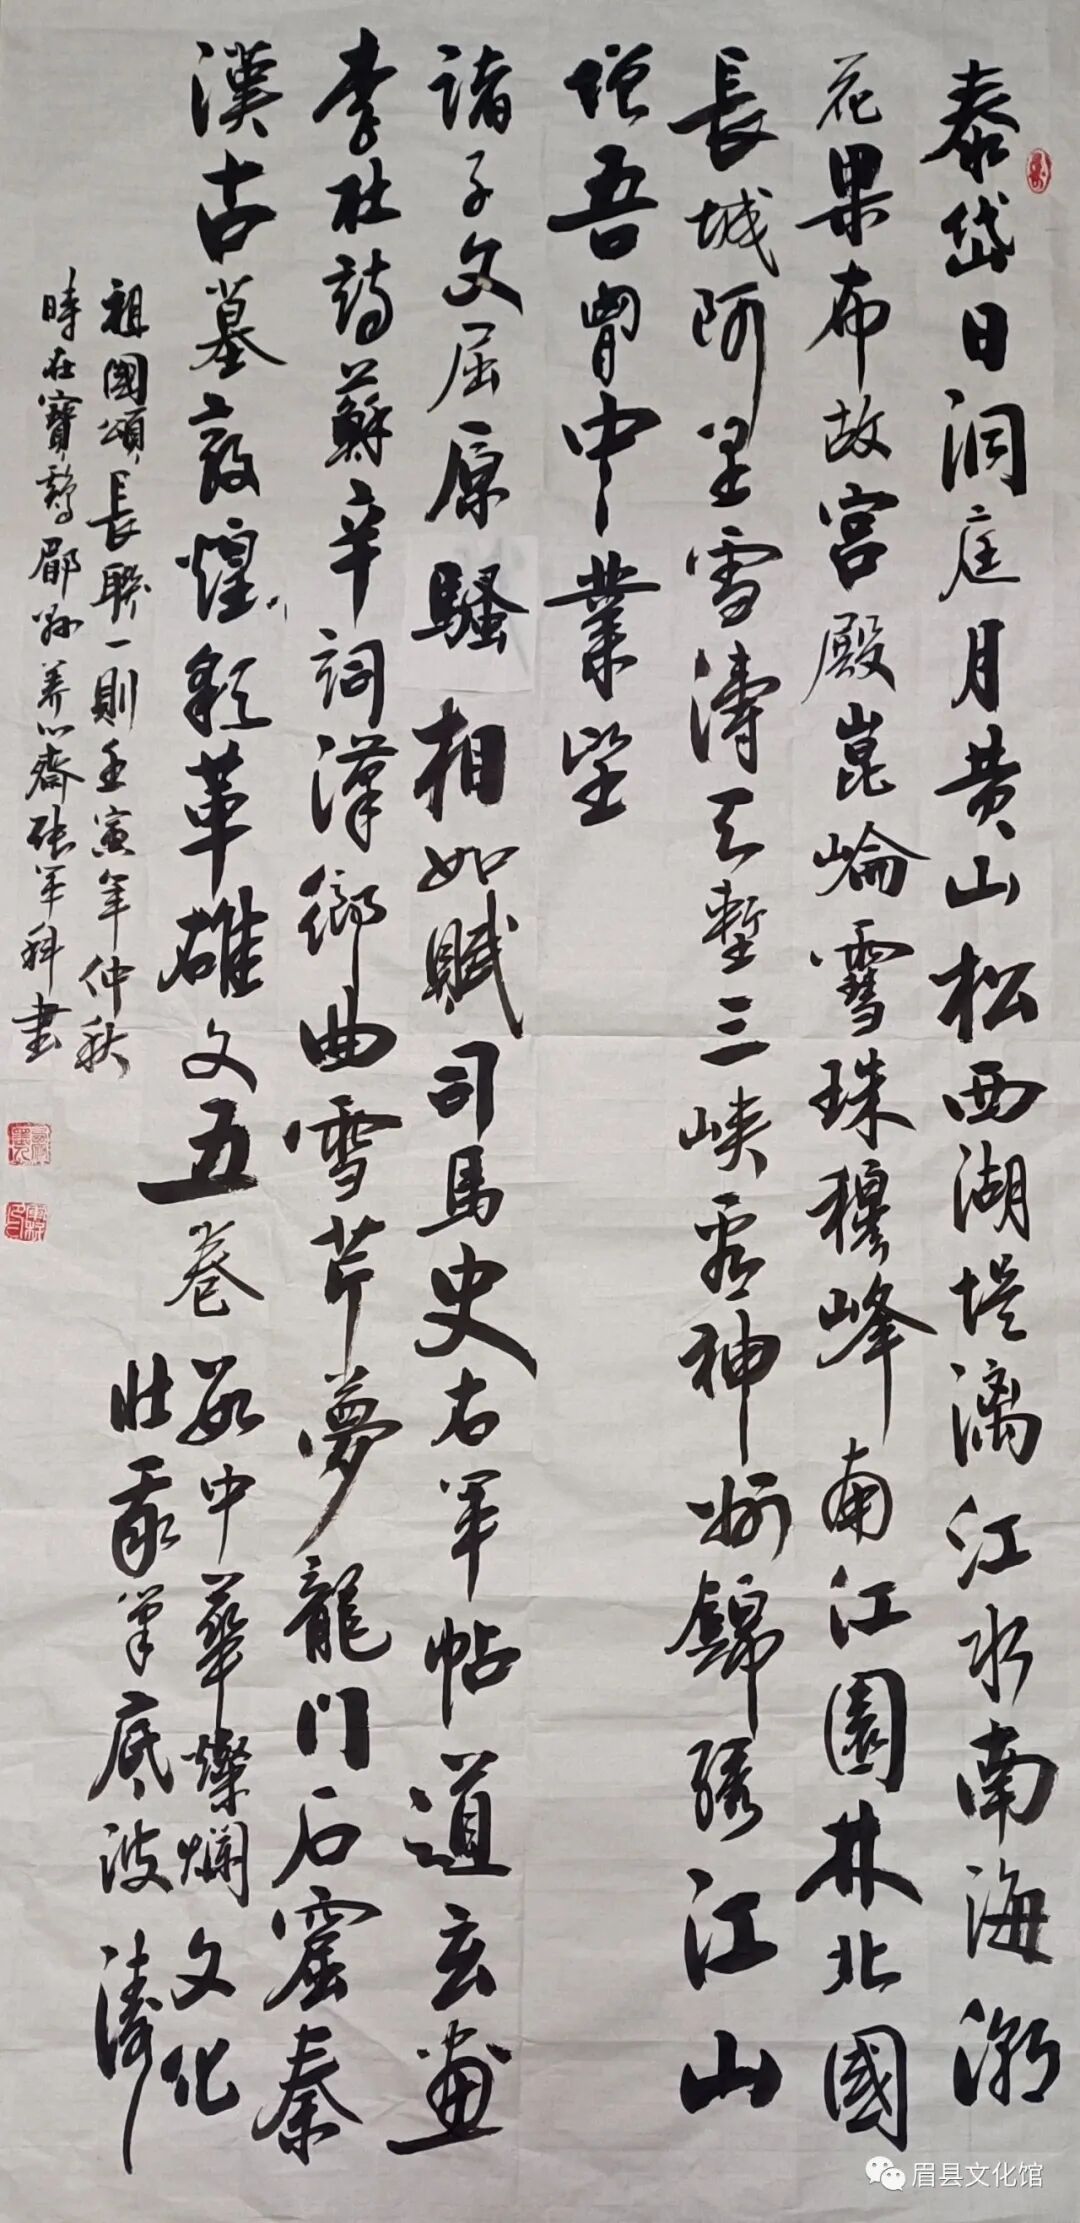 泰岱日洞庭月黄山松西湖堤漓江水南海潮
花果布故宫殿崑崙雪珠穆峰南江園林北國
長城阿里雪濤天塹三峽看神州錦繡江山
增吾胃中業望
諸子文屈原騷相如賦司馬史右軍帖道玄畫
李杜詩蘇辛詞漢卿曲雪芹夢龍門石窟秦
漢古墓敦煌彩革雄文五卷數中華燦爛文化
壯我筆底波濤
祖國頌長聯一則壬寅年仲秋
時在寶鷄郿縣养心齋張軍科書
眉县文化馆